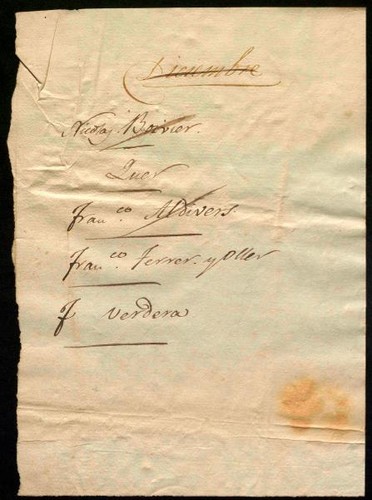 Diciembre
Nicolas Boivier.
Quer
Franco. Aldivers
Franco. Ferrer y Oller
F Verdera